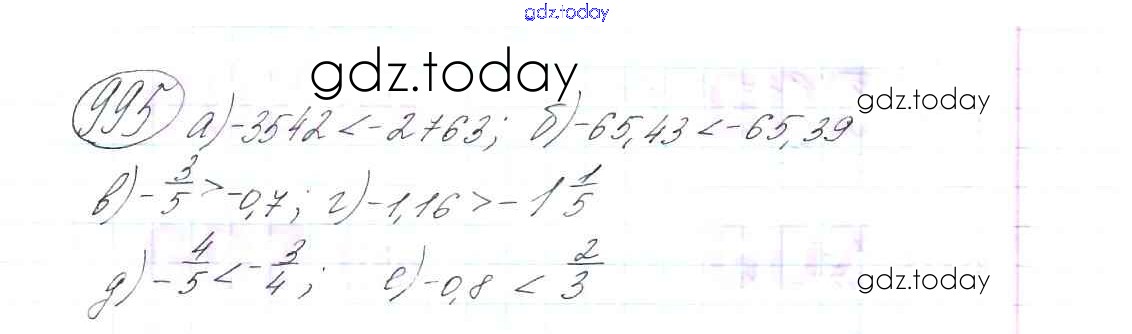 gdz.today
gdz.today
gdz.today
995 а) -3542 < -2763; б) -65,43 < -65,39
в) -3/5 > -0,7; г) -1,16 > -1 1/5
д) -4/5 < -3/4; е) -0,8 < 2/3
gdz.today